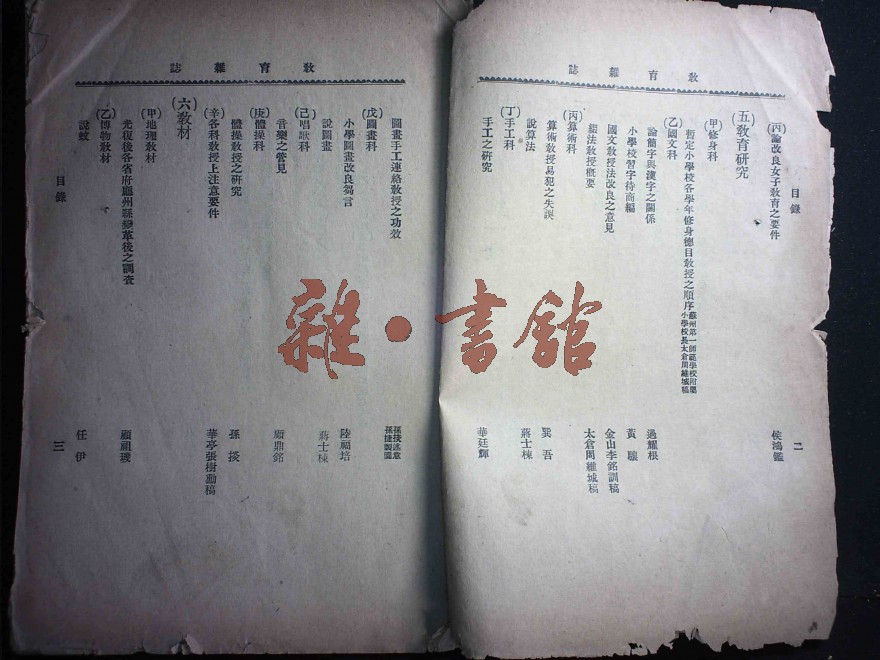 教育雜誌
目錄
二
(丙)論改良女子教育之要件 侯鴻鑑
(五)教育研究
(甲)修身科
暫定小學校各學年修身德目教授之順序 蘇州第一師範學校附屬小學校長太倉周維城稿
(乙)國文科
論簡字與漢字之關係 過耀根
小學校習字待商編 黃驤
國文教授法改良之意見 金山李銘訓稿
綴法教授概要 太倉周維城稿
(丙)算術科
算術教授易犯之失誤 巽吾
說算法 蔣士棟
(丁)手工科
手工之研究 華廷輝
教育雜誌
圖畫手工連絡教授之功效 孫掞述意 孫捷製圖
(戊)圖畫科
小學圖畫改良芻言 陸福培
說圖畫 蔣士棟
(己)唱歌科
音樂之管見 顧鼎銘
(庚)體操科
體操教授之研究 孫掞
(辛)各科教授上注意要件 華亭張樹勳稿
(六)教材
(甲)地理教材
光復後各省府廳州縣變革後之調查 顧祖瑛
(乙)博物教材
說蚊 任伊
目錄
三
雜·書舘